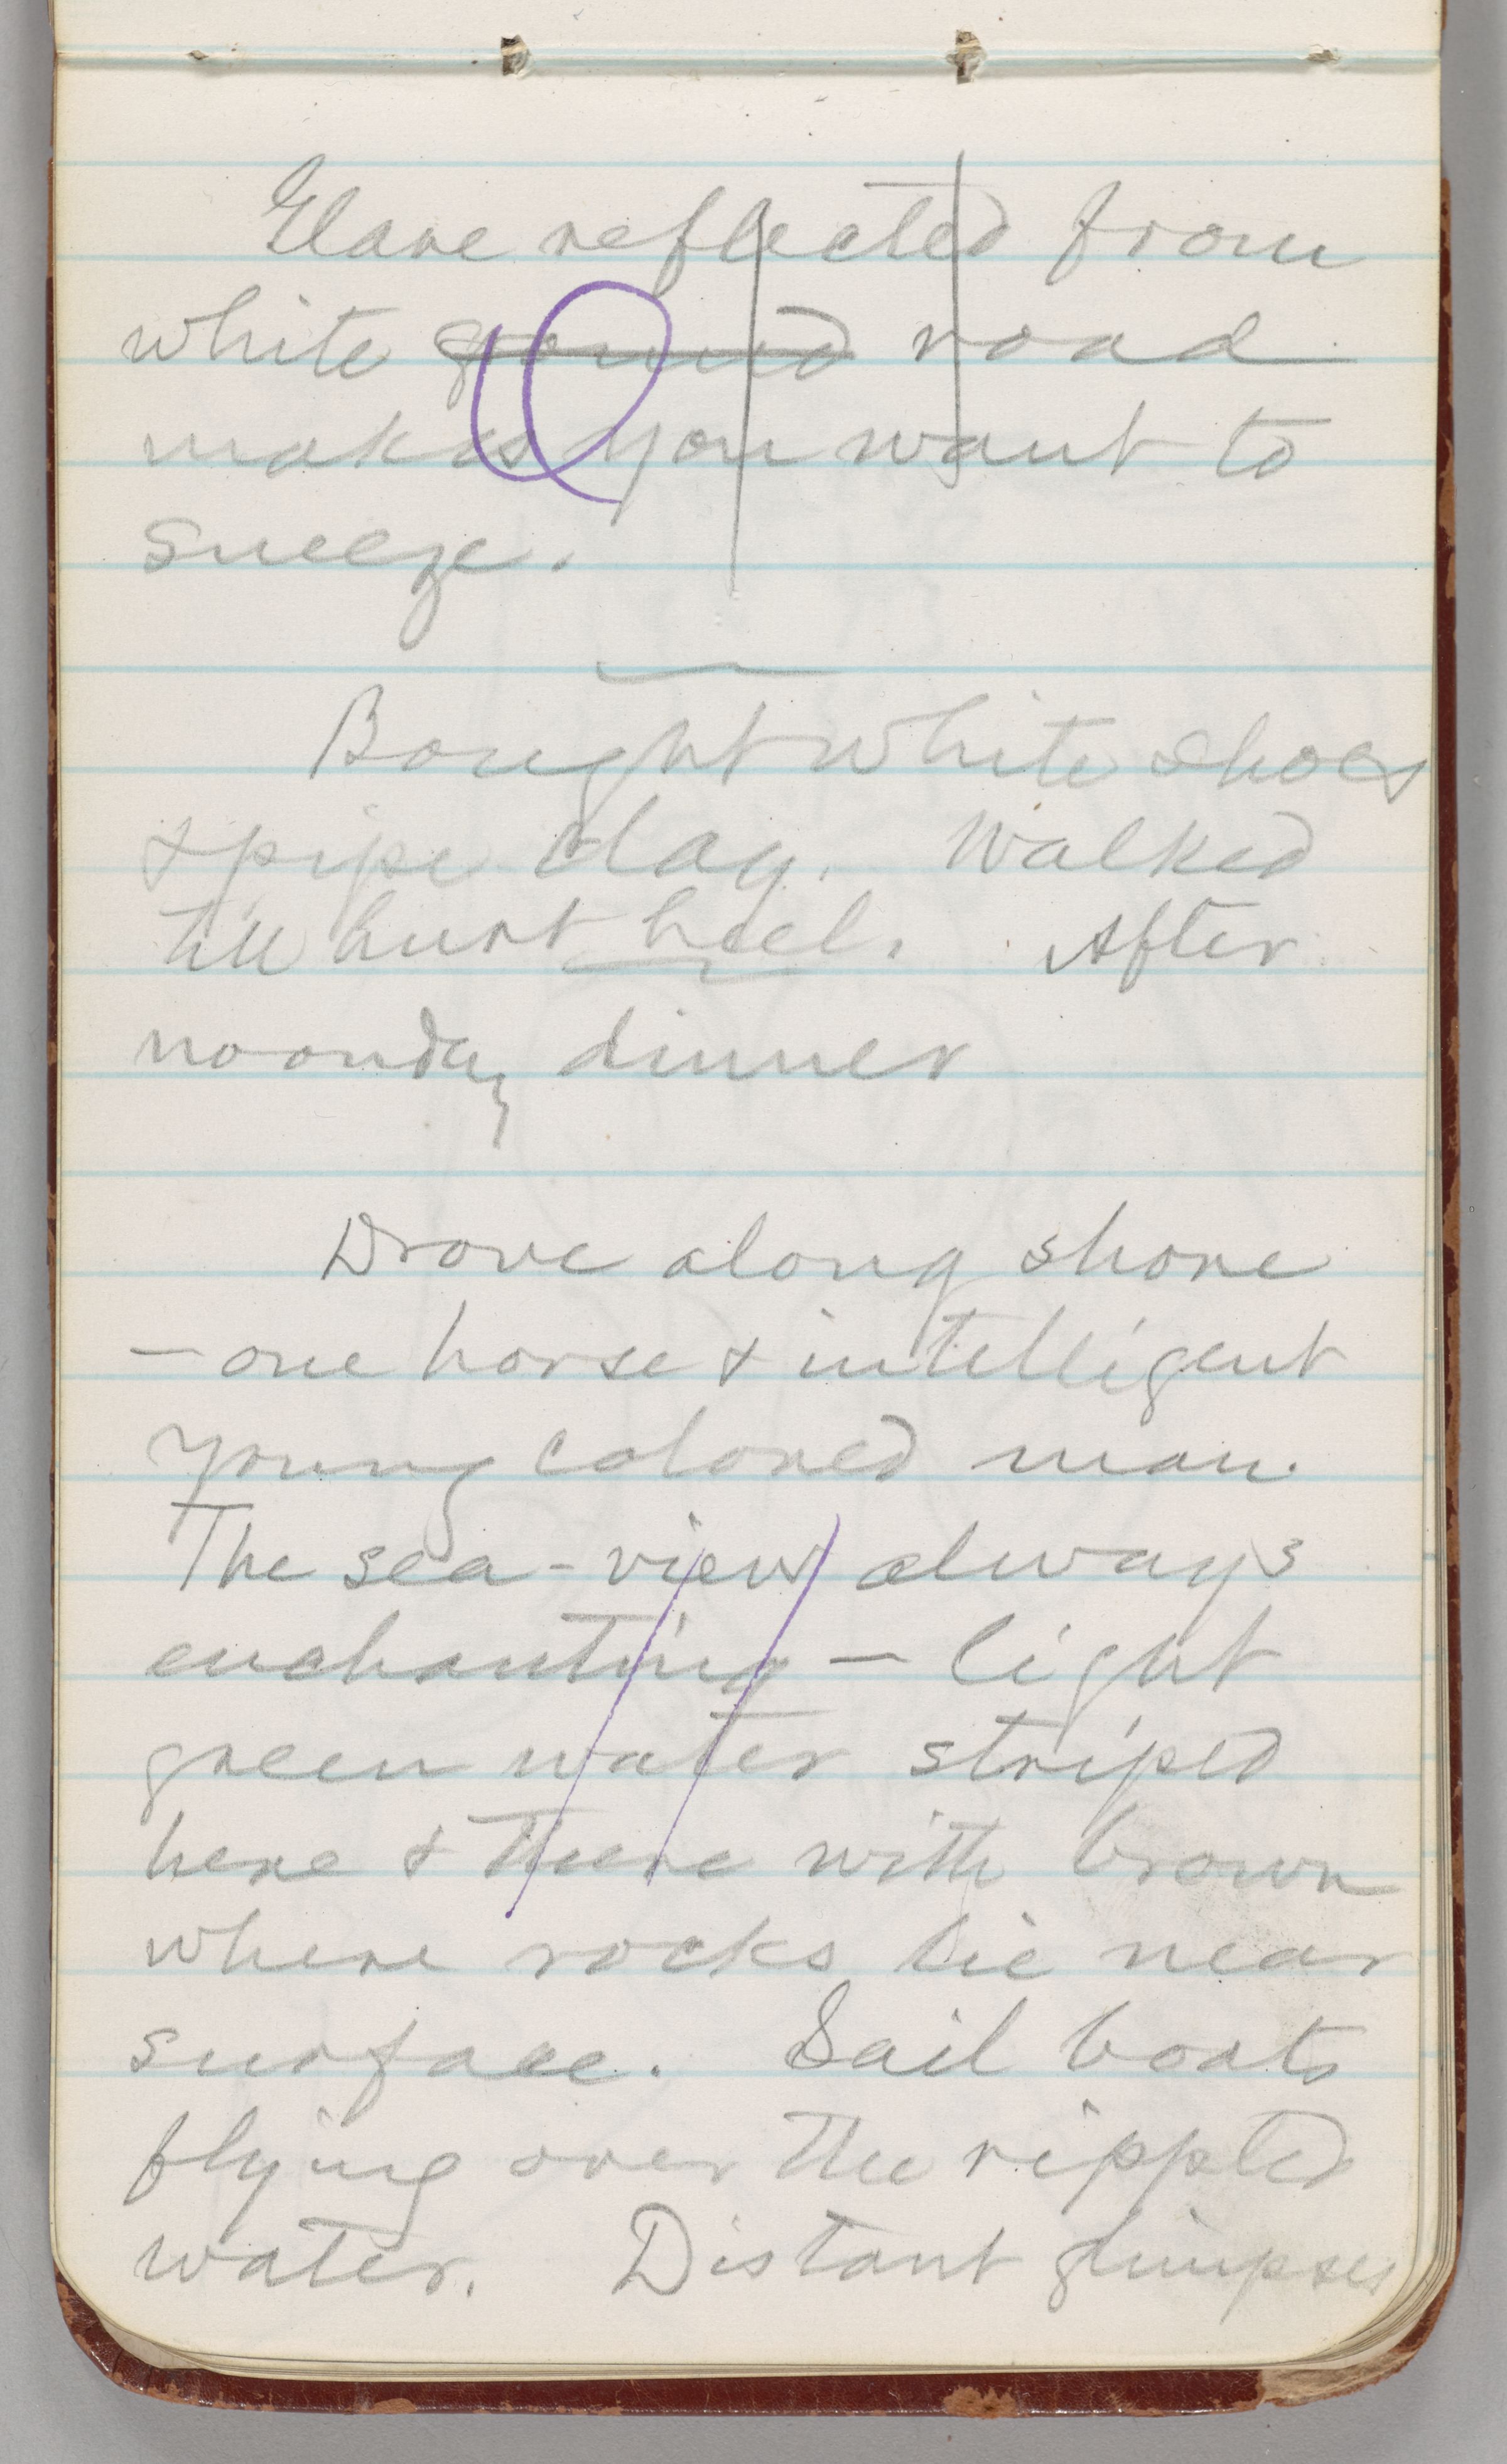 Glare reflected from
white ground road
makes you want to
sneeze.
Bought white shoes
& pipe clay. Walked
till hurt heel. After
noonday dinner
Drove along shore
— one horse & intelligent
young colored man.
The sea-view always
enchanting — light
green water striped
here & there with brown
where rocks lie near
surface. Sail boats
flying over the rippled
water. Distant glimpses